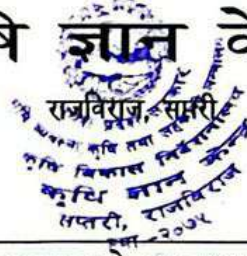 षि ज्ञान के
राजविराज, सप्तरी
कृषि विकास निर्देशनालय
कृषि ज्ञान केन्द्र
सप्तरी, राजविराज
स्था-२०७५